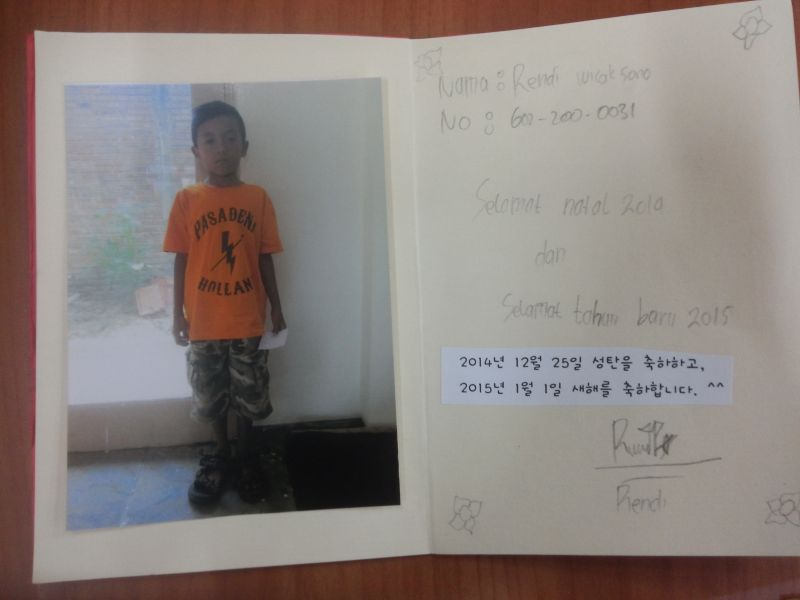 PASADENA
HOLLAN
Nama : Rendi wicaksono
No : 602-200-0031
Selamat natal 2014
dan
Selamat tahun baru 2015
2014년 12월 25일 성탄을 축하하고,
2015년 1월 1일 새해를 축하합니다. ^^
Rendi